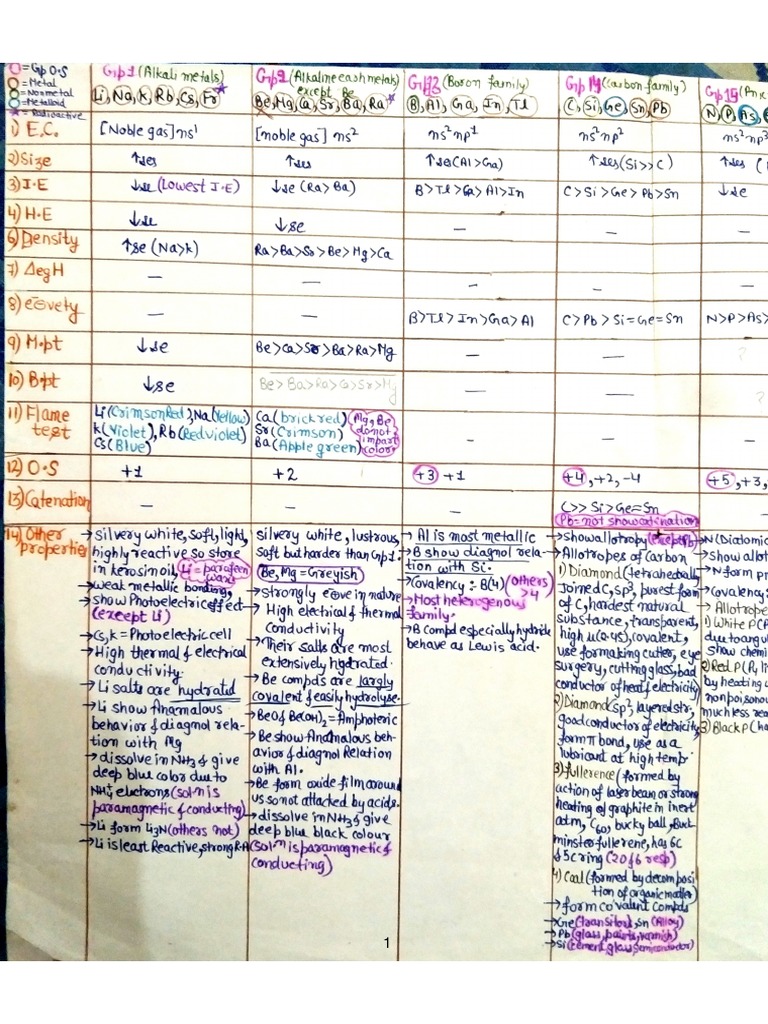 O=Gp O.S
O=Metal
O=Nonmetal
O=Metalloid
*=Radioactive
Gp1 (Alkali metals)
Li, Na, K, Rb, Cs, Fr*
Gp2 (Alkaline eash metals) except Be
Be, Mg, Ca, Sr, Ba, Ra*
Gp13 (Boron family)
B, Al, Ga, In, Tl
Gp 14 (Carbon family)
C, Si, Ge, Sn, Pb
Gp 15
N, P, As,
1) E.C.
[Noble gas] ns¹
[noble gas] ns²
ns² np¹
ns² np²
ns² np³
2) Size
↑ses
↑ses
↑ses (Al>Ga)
↑ses (Si>>C)
↑ses (
3) I.E
↓se (Lowest I.E)
↓se (Ra>Ba)
B>Tl>Ga>Al>In
C>Si>Ge>Pb>Sn
↓se
4) H.E
↓se
↓se
—
—
—
6) Density
↑se (Na>K)
Ra>Ba>Sr>Be>Mg>Ca
—
—
7) ΔegH
—
—
—
—
—
8) e⊖vety
—
—
B>Tl>In>Ga>Al
C>Pb>Si=Ge=Sn
N>P>As>
9) M.pt
↓se
Be>Ca>Sr>Ba>Ra>Mg
—
—
?
10) B.pt
↓se
Be>Ba>Ra>Ca>Sr>Mg
—
—
?
11) Flame test
Li (Crimson Red), Na (Yellow)
K (Violet), Rb (Red violet)
Cs (Blue)
Ca (brick red)
Sr (Crimson)
Ba (Apple green)
Mg, Be do not impart color
—
—
—
12) O.S
+1
+2
+3 +1
+4, +2, -4
+5, +3,
13) Catenation
—
—
—
C>>Si>Ge=Sn
(Pb=not show catination)
14) Other properties
→ silvery white, soft, light,
highly reactive so store
in kerosin oil, Li = parafeen wax
→ weak metallic bonding,
→ show Photoelectric effect
(except Li)
→ Cs, K = Photoelectric cell
→ High thermal & electrical
conductivity.
→ Li salts are hydrated
→ Li show Anamalous
behavior & diagnol rela-
tion with Mg
→ dissolve in NH3 & give
deep blue color due to
NH4+ eluctrons (solⁿ is
paramagnetic & conducting)
→ Li form Li3N (others not)
→ Li is least Reactive, strong R.A
silvery white, lustrous,
soft but harder than Gp1.
(Be, Mg = Greyish)
→ strongly e⊕ve in nature
→ High electical & thermal
conductivity
→ Their salts are most
extensively hydrated.
→ Be compds are largly
covalent & easily hydrolyse.
→ BeO & Be(OH)2 = Amphoteric
→ Be show Anamalous beh-
avior & diagnol Relation
with Al.
→ Be form oxide film around
us so not attacked by acids.
→ dissolve in NH3 & give
deep blue black colour
(solⁿ is paramagnetic &
conducting)
→ Al is most metallic
→ B show diagnol rela-
tion with Si.
→ Covalency :- B(4) (others >4)
→ Most heterogenous
family.
→ B Compd especially hydride
behave as Lewis acid.
→ show allotropy (except Pb)
→ Allotropes of carbon
1) Diamond (tetrahedrally
joined C, sp³, purest form
of C, hardest natural
substance, transparent,
high μ (2.45), covalent,
use for making cutter, eye
surgery, cutting glass, bad
conductor of heat & electricity)
2) Diamond (sp², layered str,
good conductor of electricity,
form π bond, use as a
lubricant at high temp
3) fullerence (formed by
action of laser bean or strong
heating of graphite in inert
atm, C60, bucky ball, Buck
minster fullerene, has 6C
& 5C ring (20 & 6 resp)
4) Coal (formed by decomposi
tion of organic matter)
→ form covalent compds
→ Ge (transitors), Sn (Alloy)
→ Pb (glass, paints, varnish)
→ Si (cement, glass, semiconductor)
→ N (Diatomic
→ show allot
→ N form p
→ Covalency:
→ Allotrope
1) White P (P
due to angul
show chemi
2) Red P (P4 li
by heating
non poisonou
much less rea
3) Black P (ha
1